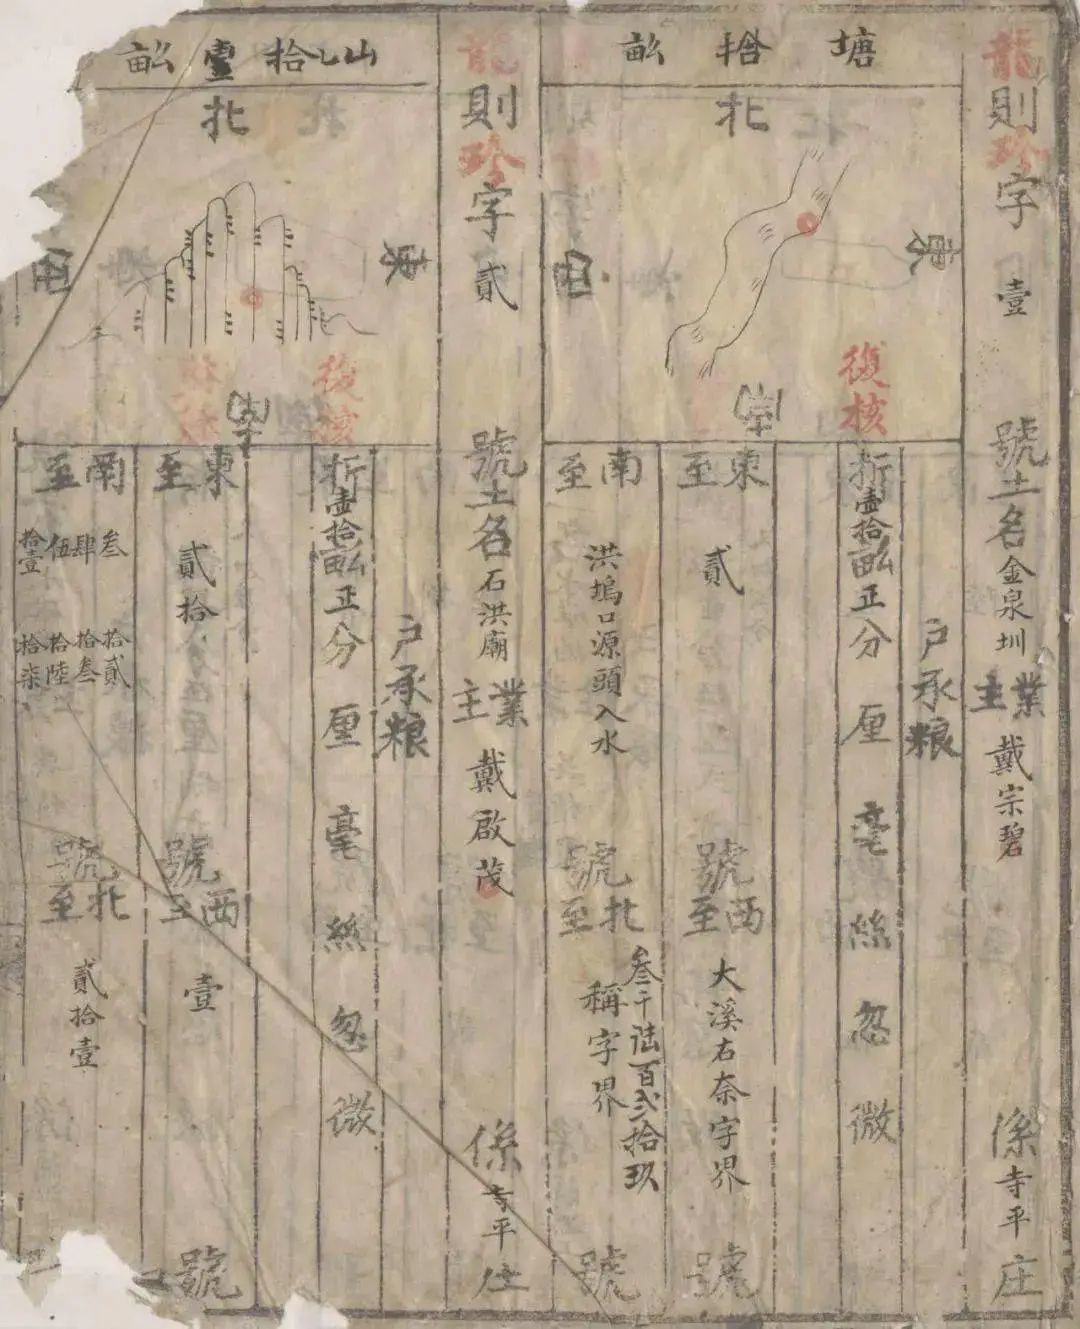 龍則珍字壹號土名金泉圳業主戴宗碧係寺平庄
塘拾畝
北
東
西
南
復核
户承粮
折壹拾畝正分厘毫絲忽微
東至貳號
西至大溪右奈字界號
南至洪塢口源頭入水號
北至叁千陆百贰拾玖稱字界號
龍則珍字貳號土名石洪廟業主戴啟茂係寺平庄
山拾壹畝
北
東
西
南
復核
户承粮
折壹拾畝正分厘毫絲忽微
東至貳拾號
西至壹號
南至叁肆伍拾壹拾貳拾叁拾陸拾柒號
北至貳拾壹